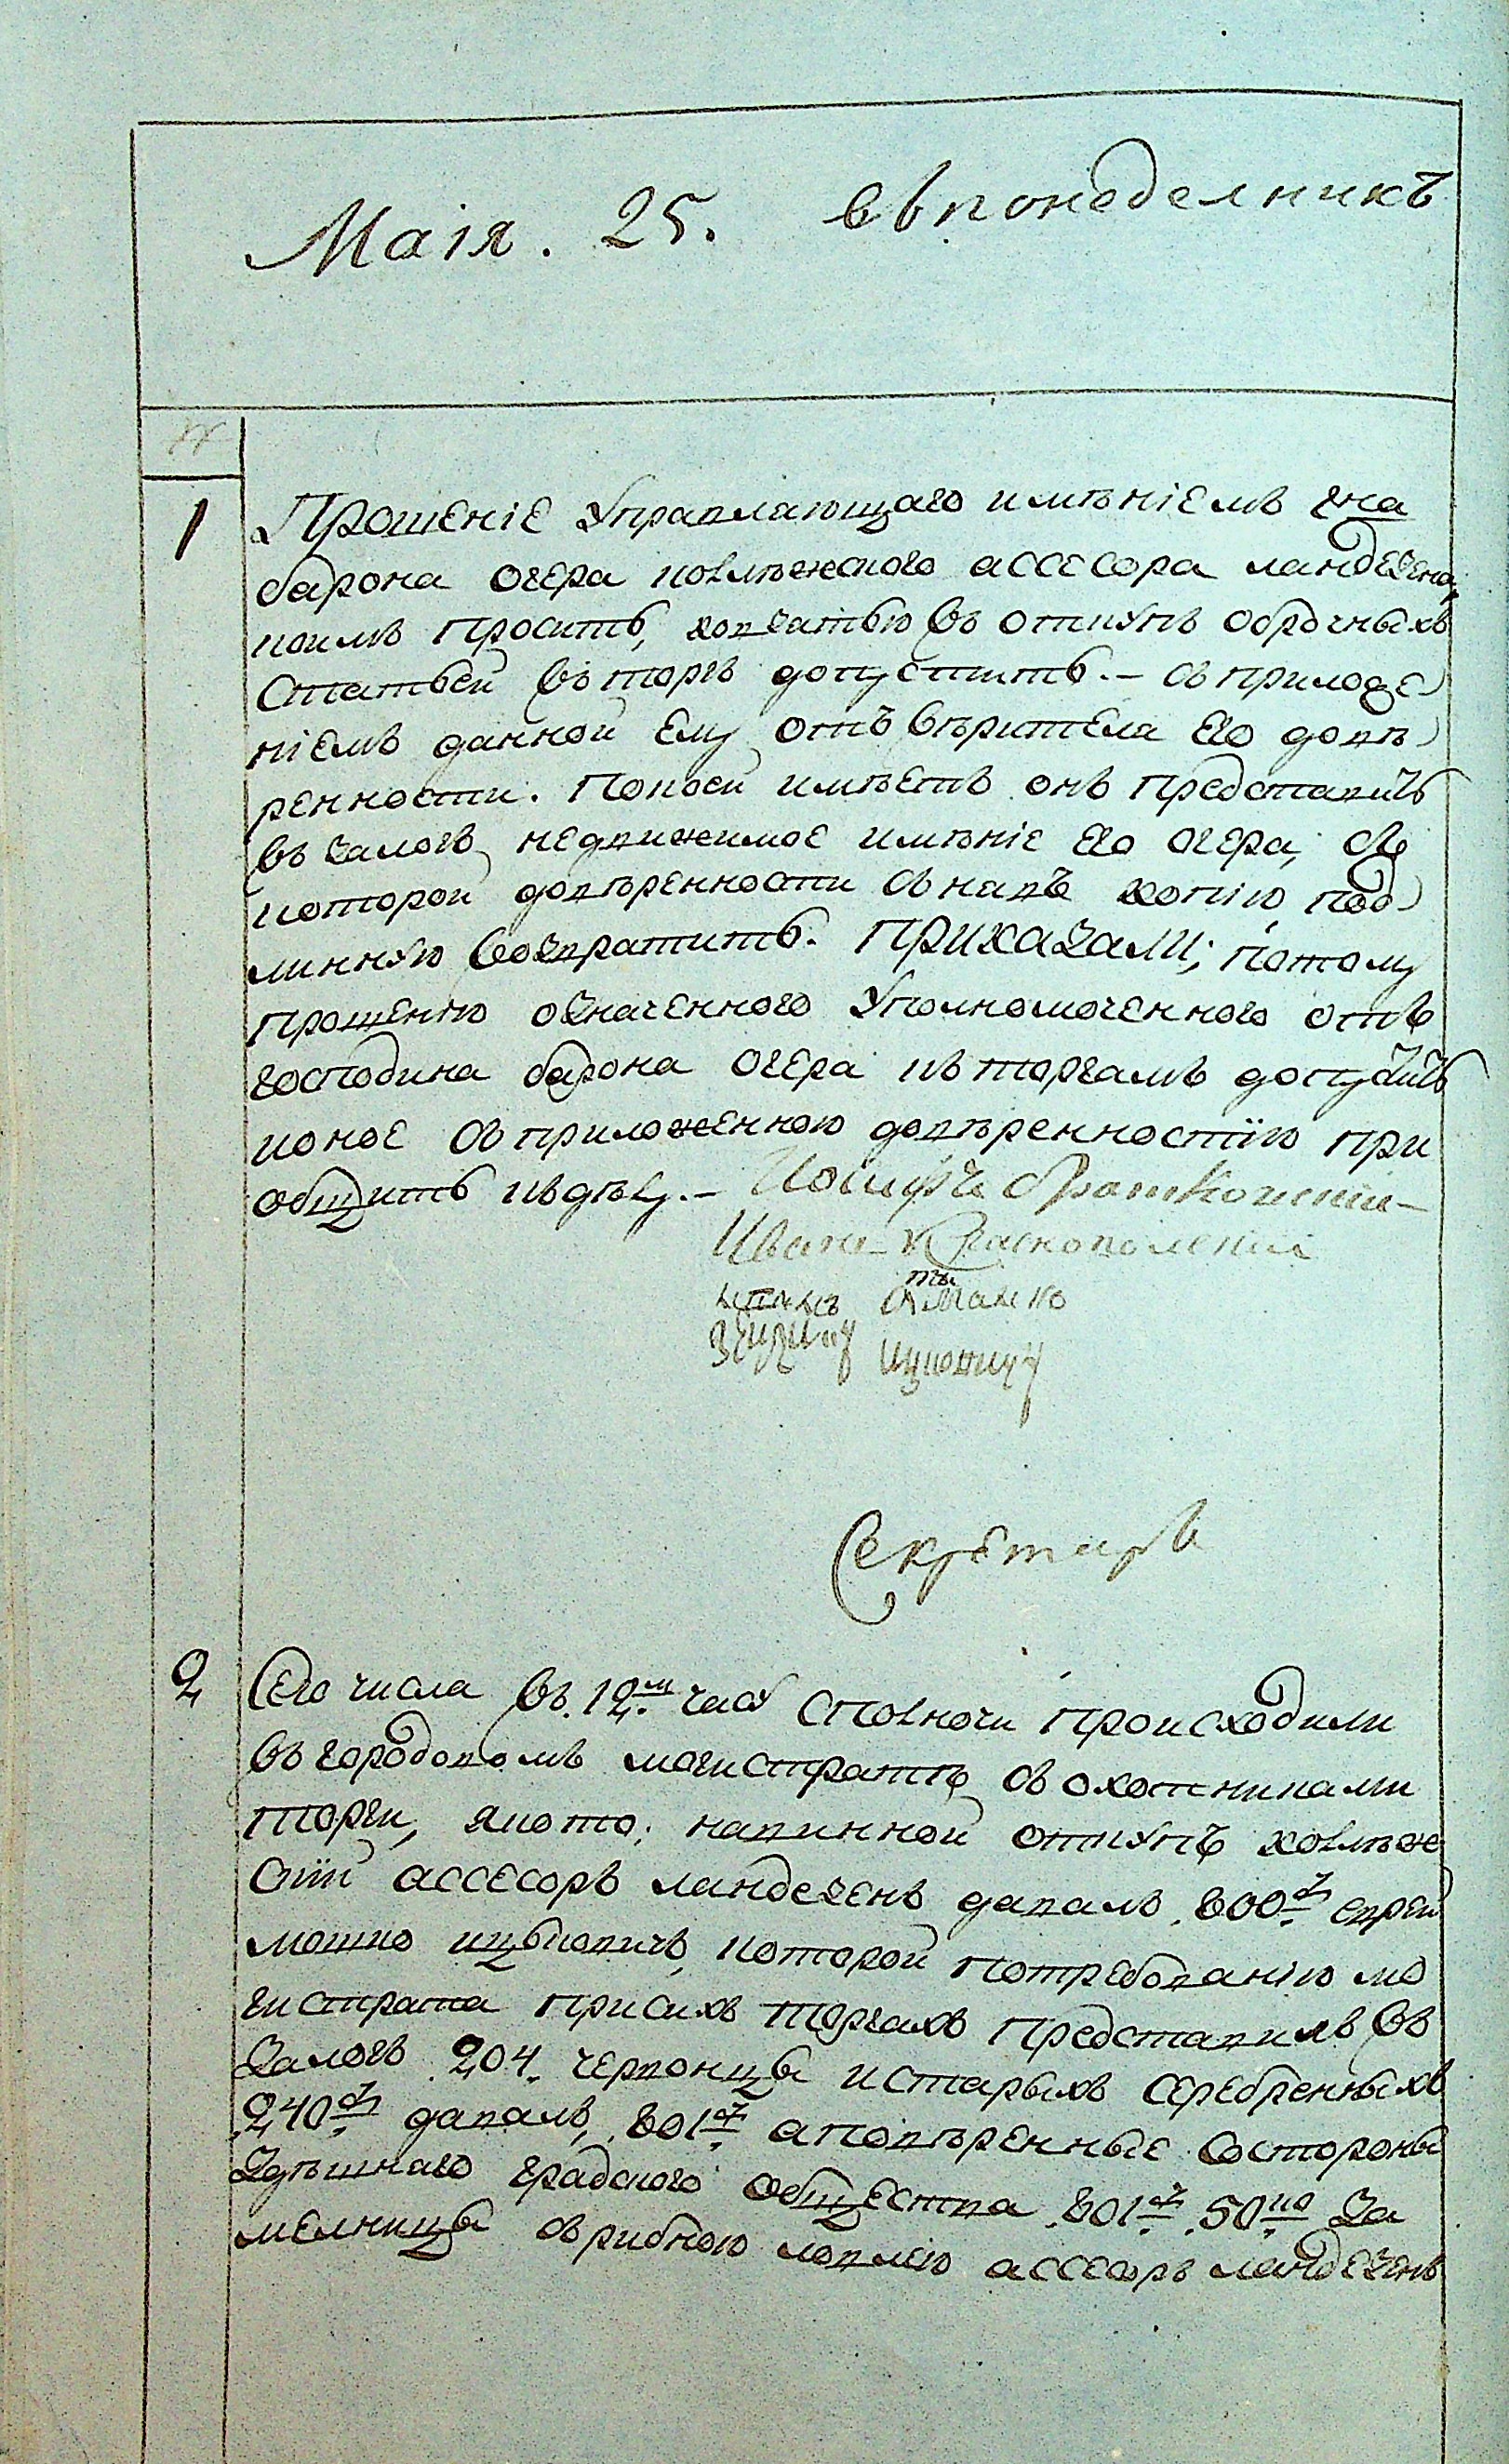 Маія . 25. въ понеделникъ
№
1 Прошеніе Управляющаго имѣніемъ гна
барона Огера коллежского ассесора ландезена,
коимъ проситъ, ко взатью въ откупъ оброчныхъ
Статьей въ торгъ допустить. – съ приложе
ніемъ данной Ему отъ вѣрителя Его довѣ
ренности. По коей имѣетъ онъ представить
въ залогъ недвижимое имѣніе Его Огера, съ
которой довѣренности снявъ копію, под
линную возвратить. Приказали; по тому
прошенію означенного Уполномоченного отъ
господина барона Огера къ торгамъ допустить
и оное съ приложенною довѣренностїю при
общить къ дѣлу. – Іосифъ Братковскій –
Иванъ Краснопольскій
Секретаръ
2 Сего числа въ. 12.м часу с полночи происходили
въ городовомъ магистратѣ съ охотниками
торги, яко то; на винной откупъ коллеж
скїй ассесоръ ландезенъ давалъ 800.р еврей
мошко ицковичъ, которой по требованію ма
гистрата при сихъ торгахъ представилъ въ
Залогъ 204. червонцы и старыхъ серебренныхъ
240.р давалъ, 801.р а повѣренные со стороны
Здѣшнаго градского общества 801.р 50.ко За
мелницы съ рибною ловлею ассесоръ ландезенъ